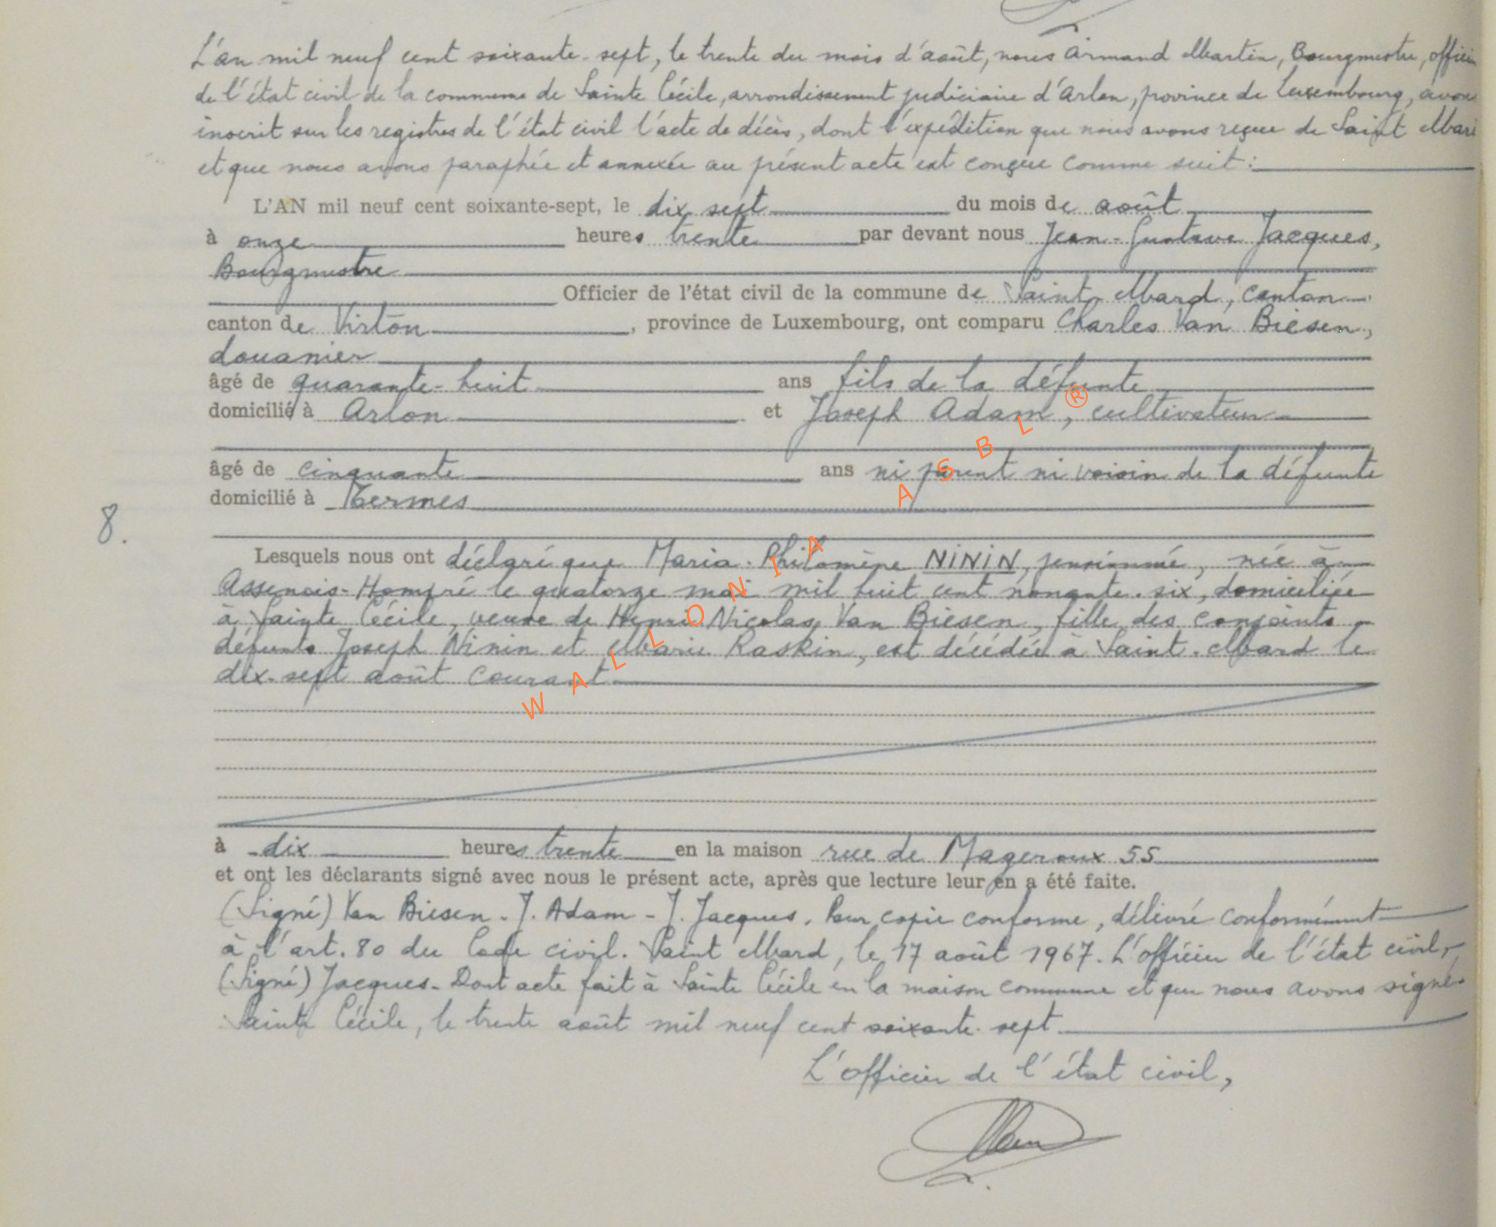 L'an mil neuf cent soixante-sept, le trente du mois d'août, nous Armand Martin, Bourgmestre, officier
de l'état civil de la commune de Sainte Cécile, arrondissement judiciaire d'Arlon, province de Luxembourg, avons
inscrit sur les registres de l'état civil l'acte de décès, dont l'expédition que nous avons reçue de Saint Mard
et que nous avons paraphée et annexée au présent acte est conçue comme suit :
L'AN mil neuf cent soixante-sept, le dix sept du mois de août
à onze heures trente par devant nous Jean-Gustave Jacques,
Bourgmestre
Officier de l'état civil de la commune de Saint Mard, canton
canton de Virton, province de Luxembourg, ont comparu Charles Van Biesen,
douanier
âgé de quarante-huit ans fils de la défunte
domicilié à Arlon et Joseph Adam, cultivateur
âgé de cinquante ans ni parent ni voisin de la défunte
domicilié à Termes
8.
Lesquels nous ont déclaré que Maria-Philomène NININ, pensionnée, née à
Assenois-Hompré le quatorze mai mil huit cent nonante-six, domiciliée
à Sainte Cécile, veuve de Henri Nicolas Van Biesen, fille des conjoints
défunts Joseph Ninin et Marie Raskin, est décédée à Saint-Mard le
dix-sept août courant
à dix heures trente en la maison rue de Mageroux 55
et ont les déclarants signé avec nous le présent acte, après que lecture leur en a été faite.
(Signé) Van Biesen - J. Adam - J. Jacques. Pour copie conforme, délivré conformément
à l'art. 80 du Code civil. Saint Mard, le 17 août 1967. L'officier de l'état civil,
(Signé) Jacques. Dont acte fait à Sainte Cécile en la maison commune et que nous avons signé.
Sainte Cécile, le trente août mil neuf cent soixante-sept
L'officier de l'état civil,
WALLONIA ASBL ®